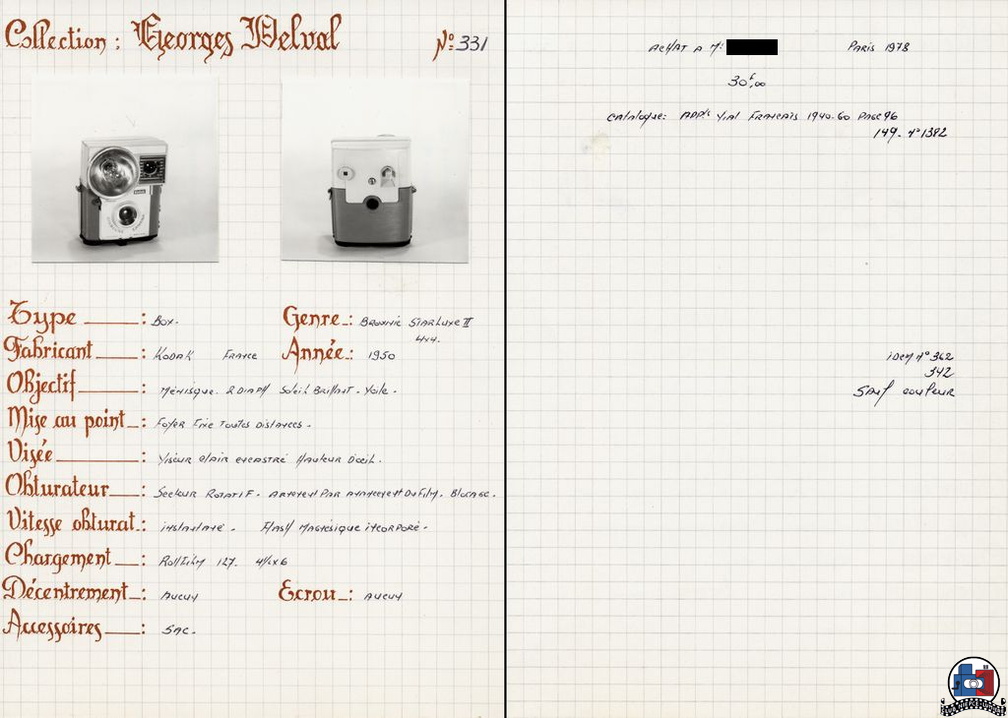 Collection : Georges Delval N°: 331
Type : Box.
Genre : Brownie Starluxe II
4x4.
Fabricant : Kodak France
Année : 1950
Objectif : Ménisque. 2 Diaph Soleil Brillant - Voilé.
Mise au point : Foyer Fixe Toutes Distances.
Visée : Viseur Clair encastré Hauteur D'oeil.
Obturateur : Secteur Rotatif. Armement Par avancement Du Film. Blocage.
Vitesse obturat. : instantané. Flash Magnésique incorporé.
Chargement : Rollfilm 127.
Décentrement : Aucun
Ecrou : Aucun
Accessoires : SAC.
ACHAT A Mr PARIS 1978
30f,00
Catalogue: APP. Français 1940-60 Page 96
149. N° 1382
idem N° 362
342
Sauf couleur